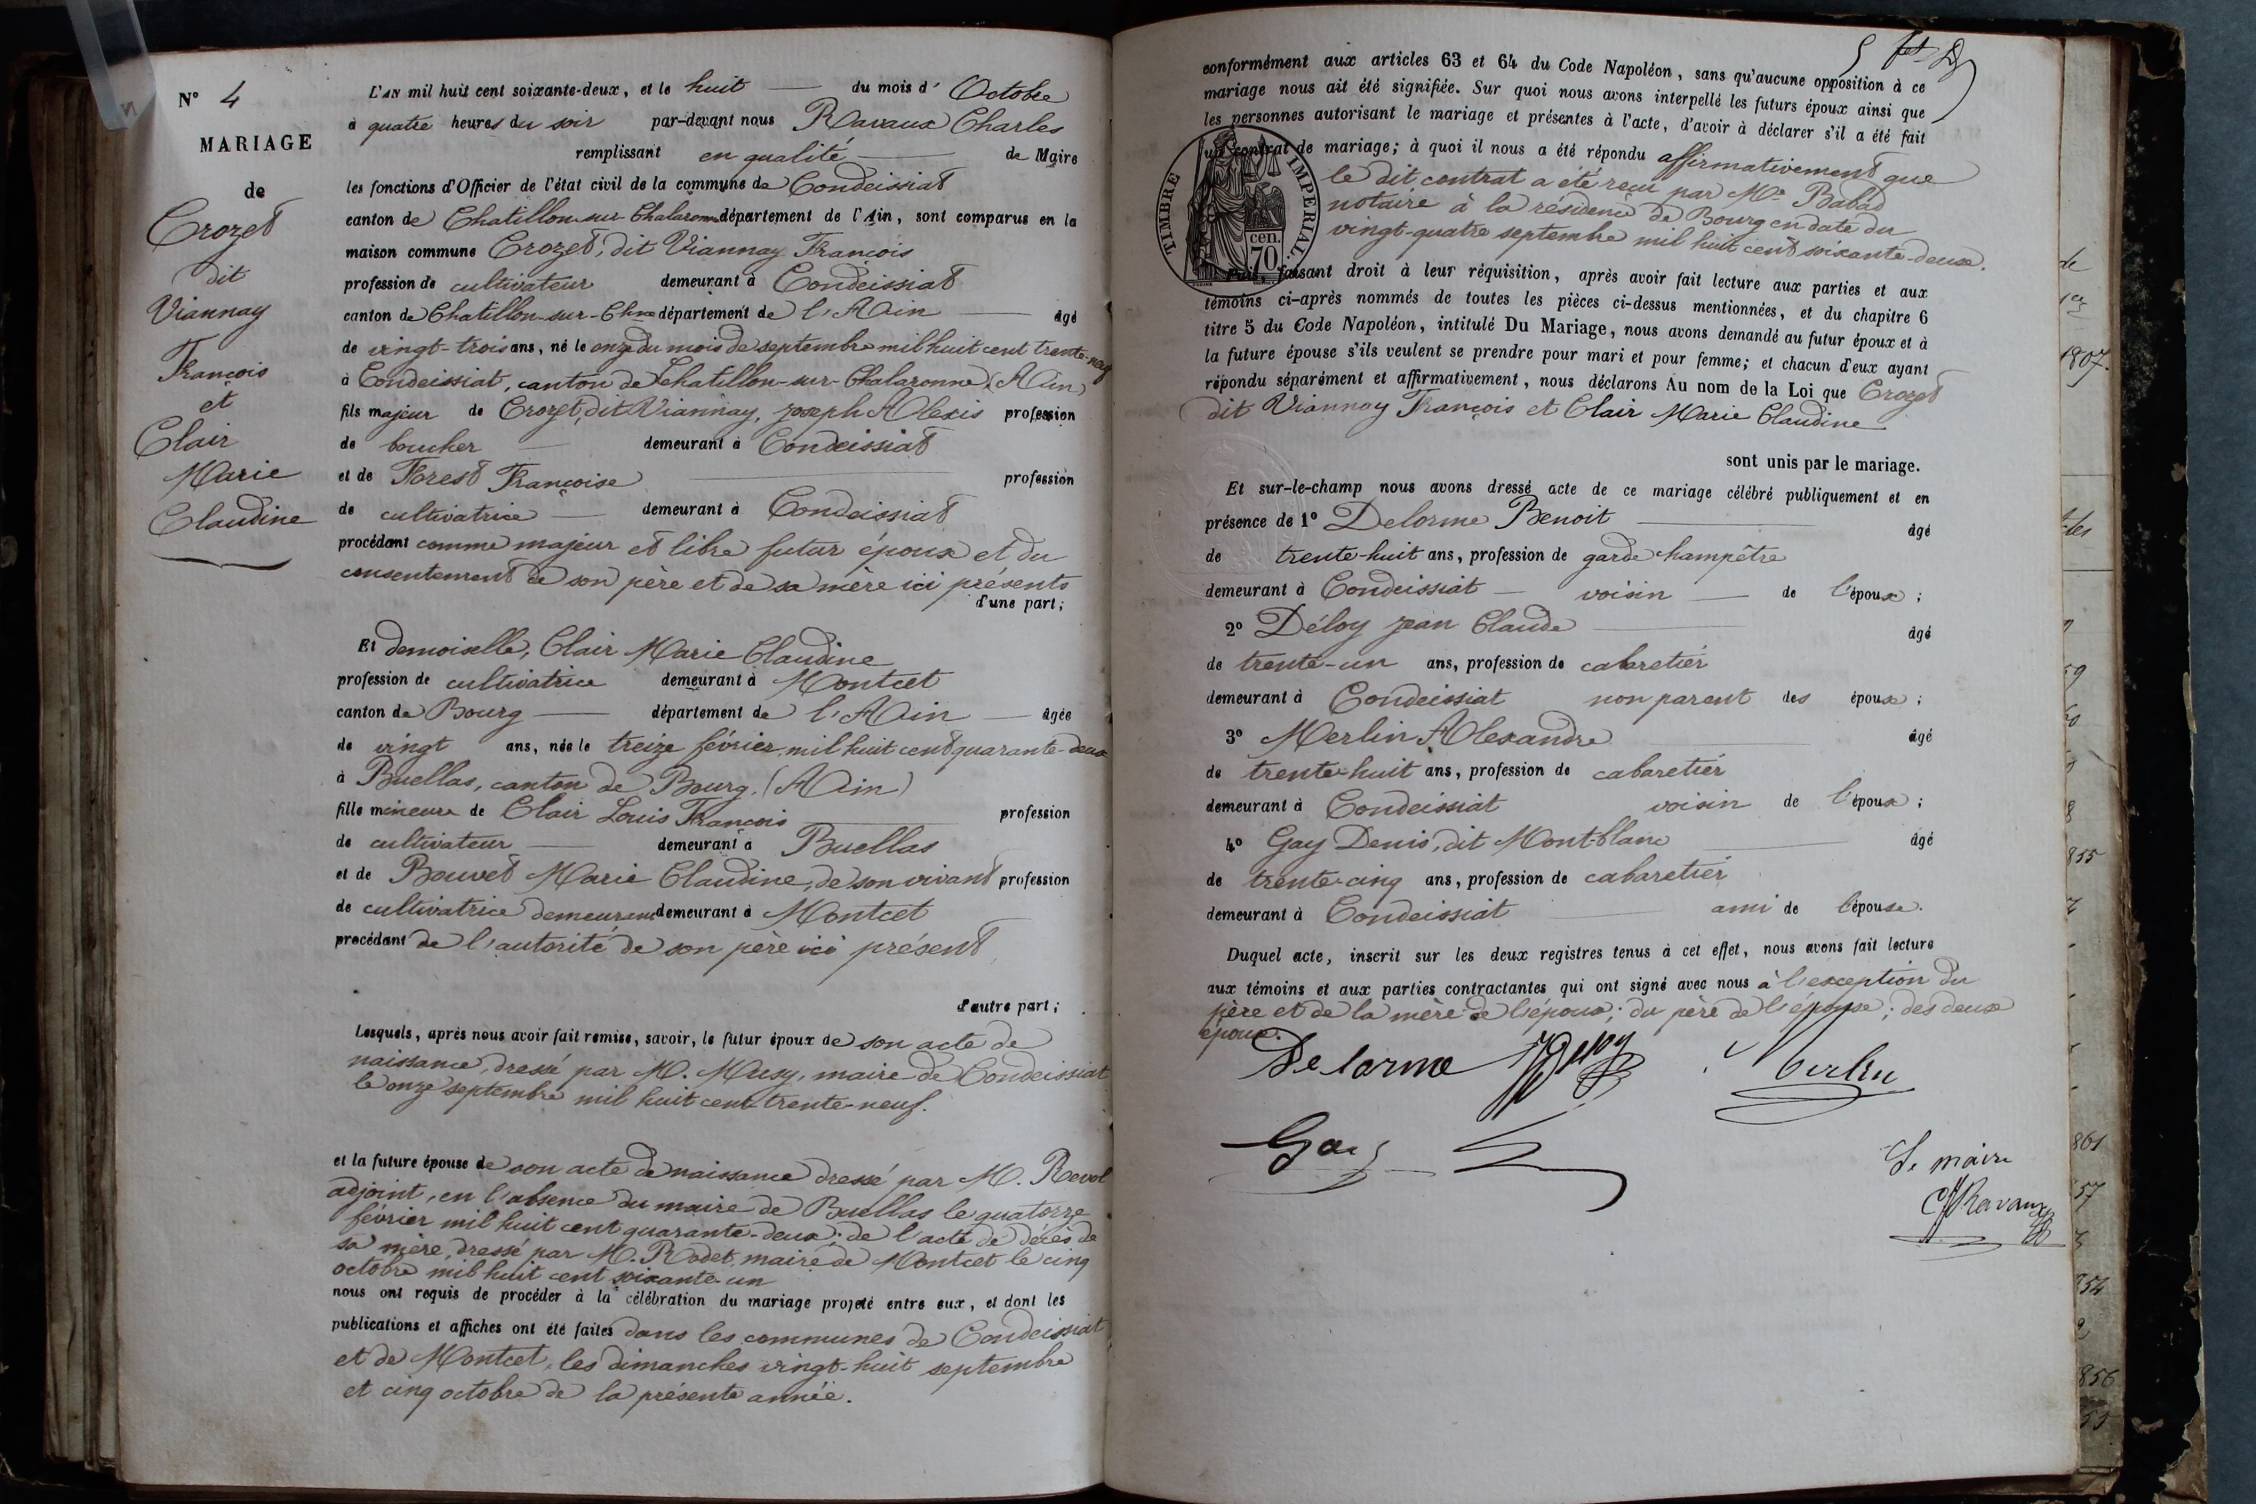 N° 4
MARIAGE
de
Crozet
dit
Viannay
François
et
Clair
Marie
Claudine
L'AN mil huit cent soixante-deux, et le huit du mois d' Octobre
à quatre heures du soir par-devant nous Ravaux Charles
remplissant en qualité de Maire
les fonctions d'Officier de l'état civil de la commune de Condeissiat
canton de Chatillon-sur-Chalaronne département de l'Ain, sont comparus en la
maison commune Crozet, dit Viannay François
profession de cultivateur demeurant à Condeissiat
canton de Chatillon-sur-Chne département de l'Ain âgé
de vingt-trois ans, né le onze du mois de septembre mil huit cent trente-neuf
à Condeissiat, canton de Chatillon-sur-Chalaronne (Ain)
fils majeur de Crozet, dit Viannay, joseph Alexis profession
de boucher demeurant à Condeissiat
et de Forest Françoise profession
de cultivatrice demeurant à Condeissiat
procédant comme majeur et libre futur époux et du
consentement de son père et de sa mère ici présents
d'une part;
Et demoiselle, Clair Marie Claudine
profession de cultivatrice demeurant à Montcet
canton de Bourg département de l'Ain âgée
de vingt ans, née le treize février mil huit cent quarante-deux
à Buellas, canton de Bourg. (Ain)
fille mineure de Clair Louis François profession
de cultivateur demeurant à Buellas
et de Bouvet Marie Claudine, de son vivant profession
de cultivatrice demeurant demeurant à Montcet
procédant de l'autorité de son père ici présent
d'autre part;
Lesquels, après nous avoir fait remise, savoir, le futur époux de son acte de
naissance, dressé par M. Musy, maire de Condeissiat
le onze septembre mil huit cent trente-neuf.
et la future épouse de son acte de naissance dressé par M. Revol
adjoint, en l'absence du maire de Buellas le quatorze
février mil huit cent quarante-deux; de l'acte de décès de
sa mère, dressé par M. Rodet, maire de Montcet le cinq
octobre mil huit cent soixante-un
nous ont requis de procéder à la célébration du mariage projeté entre eux, et dont les
publications et affiches ont été faites dans les communes de Condeissiat
et de Montcet, les dimanches vingt-huit septembre
et cinq octobre de la présente année.
conformément aux articles 63 et 64 du Code Napoléon, sans qu'aucune opposition à ce
mariage nous ait été signifiée. Sur quoi nous avons interpellé les futurs époux ainsi que
les personnes autorisant le mariage et présentes à l'acte, d'avoir à déclarer s'il a été fait
un contrat de mariage; à quoi il nous a été répondu affirmativement que
le dit contrat a été reçu par Me Babad
notaire à la résidence de Bourg en date du
vingt-quatre septembre mil huit cent soixante-deux.
TIMBRE IMPERIAL
cen.
70
Puis, faisant droit à leur réquisition, après avoir fait lecture aux parties et aux
témoins ci-après nommés de toutes les pièces ci-dessus mentionnées, et du chapitre 6
titre 5 du Code Napoléon, intitulé Du Mariage, nous avons demandé au futur époux et à
la future épouse s'ils veulent se prendre pour mari et pour femme; et chacun d'eux ayant
répondu séparément et affirmativement, nous déclarons Au nom de la Loi que Crozet
dit Viannay François et Clair Marie Claudine
sont unis par le mariage.
Et sur-le-champ nous avons dressé acte de ce mariage célébré publiquement et en
présence de 1° Delorme Benoit âgé
de trente-huit ans, profession de garde champêtre
demeurant à Condeissiat voisin de l'époux;
2° Déloy jean Claude âgé
de trente-un ans, profession de cabaretier
demeurant à Condeissiat non parent des époux;
3° Merlin Alexandre âgé
de trente-huit ans, profession de cabaretier
demeurant à Condeissiat voisin de l'époux;
4° Gay Denis, dit Mont-blanc âgé
de trente-cinq ans, profession de cabaretier
demeurant à Condeissiat ami de l'épouse.
Duquel acte, inscrit sur les deux registres tenus à cet effet, nous avons fait lecture
aux témoins et aux parties contractantes qui ont signé avec nous à l'exception du
père et de la mère de l'époux; du père de l'épouse; des deux
époux.
Delorme Merlin
Gay
Le maire
C Ravaux
de
1807.
59
855
861
57
854
856